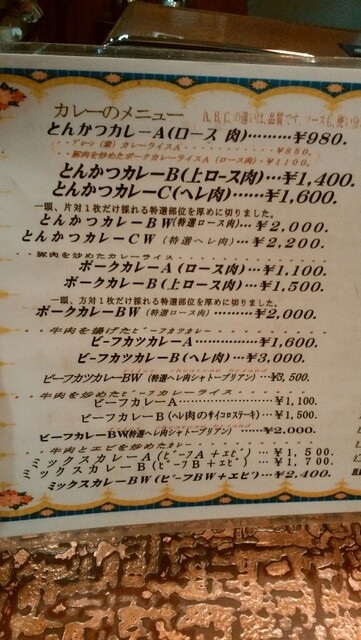 カレーのメニュー
A,B,Cの違いは、品質です。ソースも、使い分
とんかつカレーA(ロース 肉)………¥980.
プレーン(素) カレーライスA ¥850.
豚肉を炒めたポークカレーライスA (ロース肉)・¥1100
とんかつカレーB(上ロース肉)…¥1,400.
とんかつカレーC(ヘレ肉)……¥1,600.
一頭、片対1枚だけ採れる特選部位を厚めに切りました。
とんかつカレーBW(特選ロース肉)…¥2,000.
とんかつカレーCW (特選ヘレ肉)…¥2,200.
豚肉を炒めたカレーライス
ポークカレーA (ロース肉)…¥1,100.
ポークカレーB(上ロース肉)…¥1,500.
一頭、方対1枚だけ採れる特選部位を厚めに切りました。
ポークカレーBW(特選ロース肉)…¥2,000.
牛肉を揚げたビーフカツカレー
ビーフカツカレーA…………¥1,600.
ビーフカツカレーB(ヘレ肉)…¥3,000.
ビーフカツカレーBW (特選ヘレ肉シャトーブリアン)…¥3,500.
牛肉を炒めたビーフカレーライス
ビーフカレーA………………¥1,100.
ビーフカレーB(ヘレ肉のサイコロステーキ)…¥1,500.
ビーフカレーBW(特選ヘレ肉シャトーブリアン)…¥2,000.
牛肉とエビを炒めたカレー
ミックスカレーA(ビーフA+エビ)…¥1,500.
ミックスカレーB(ビーフB+エビ)…¥1,700.
ミックスカレーBW(ビーフBW+エビ)…¥2,400.